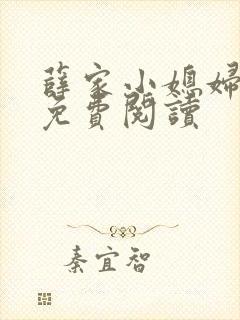 薛家小媳婦
免費閱讀
秦宜智